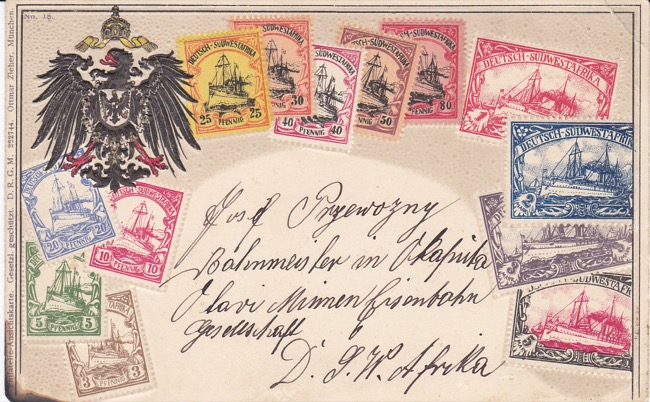 No. 18.
Gesetzl. geschützt. D. R. G. M. 222744. Ottmar Zieher, München.
DEUTSCH-SÜDWESTAFRIKA
25 PFENNIG 25
DEUTSCH-SÜDWESTAFRIKA
30 PFENNIG 30
DEUTSCH-SÜDWESTAFRIKA
40 PFENNIG 40
DEUTSCH-SÜDWESTAFRIKA
PFENNIG 50
DEUTSCH-SÜDWESTAFRIKA
PFENNIG 80
DEUTSCH-SÜDWESTAFRIKA
DEUTSCH-SÜDWESTAFRIKA
20 PFENNIG 20
10 PFENNIG 10
5 PFENNIG 5
3 PFENNIG 3
Josef Przewozny
Bahnmeister in
Otavi Minnen Eisenbahn
Gesellschaft
D. S. W. Afrika